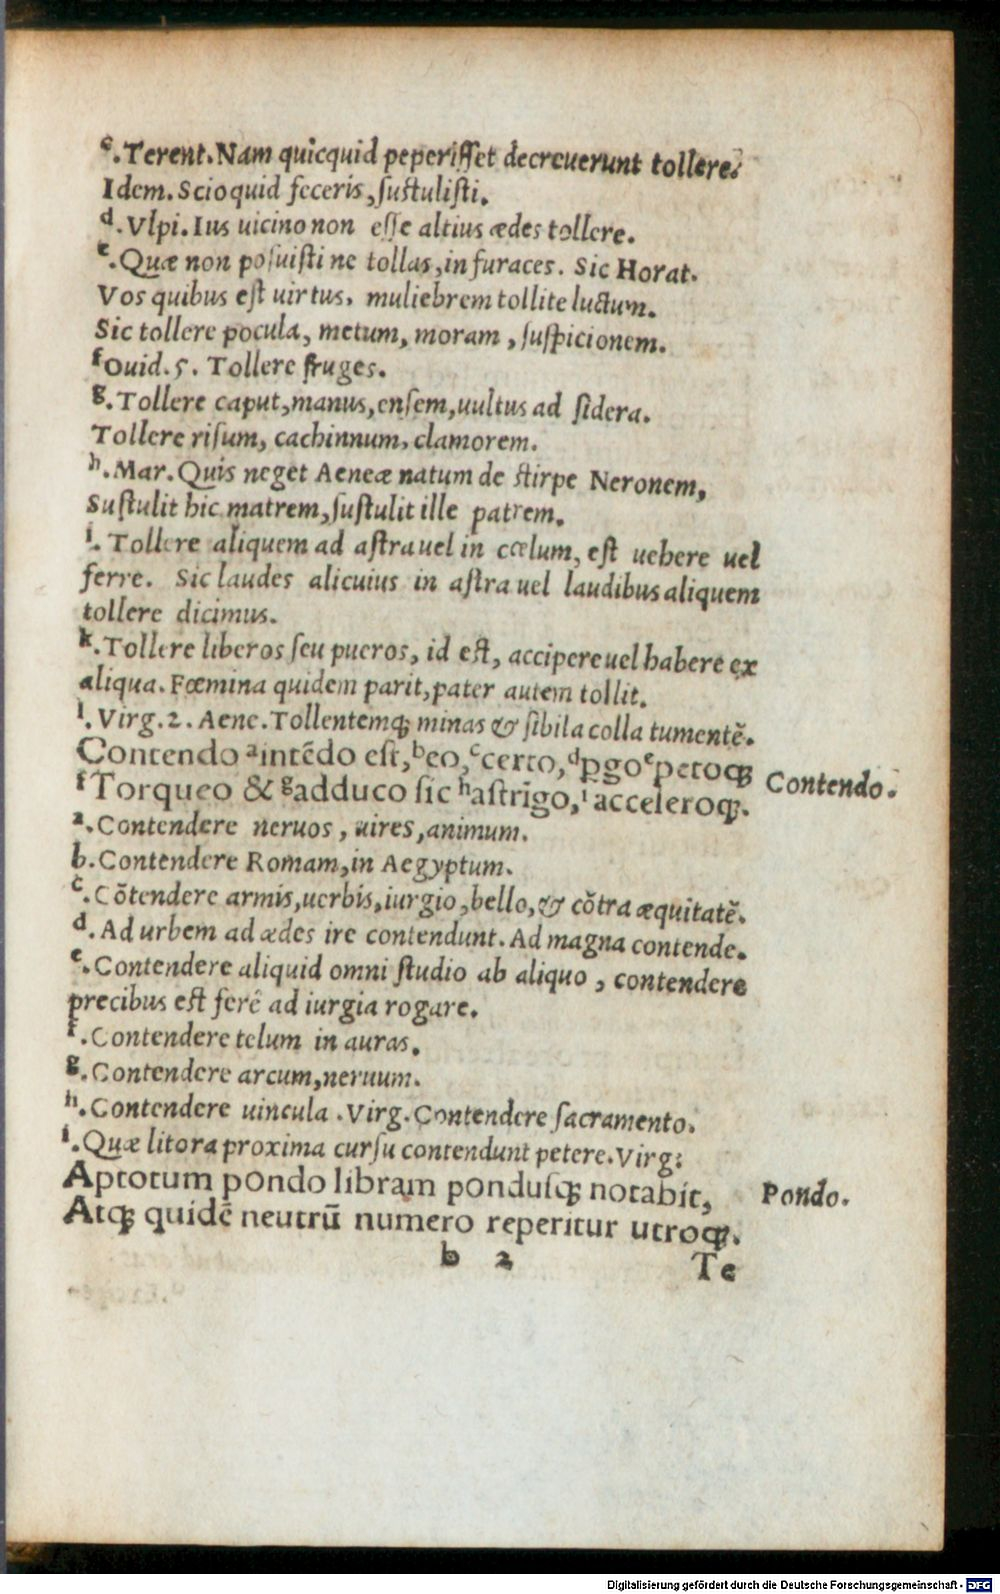 c.Terent.Nam quicquid peperiſſet decreuerunt tollere.
Idem. Scio quid feceris, ſuſtuliſti.
d.Vlpi. Ius uicino non eſſe altius ædes tollere.
e.Quæ non poſuiſti ne tollas, in furaces. Sic Horat.
Vos quibus eſt uirtus, muliebrem tollite luctum.
Sic tollere pocula, metum, moram, ſuſpicionem.
f Ouid. 5. Tollere fruges.
g.Tollere caput, manus, enſem, uultus ad ſidera.
Tollere riſum, cachinnum, clamorem.
h.Mar. Quis neget Aeneæ natum de ſtirpe Neronem,
Suſtulit hic matrem, ſuſtulit ille patrem.
i. Tollere aliquem ad aſtra uel in cœlum, eſt uehere uel
ferre. Sic laudes alicuius in aſtra uel laudibus aliquem
tollere dicimus.
k.Tollere liberos ſeu pueros, id eſt, accipere uel habere ex
aliqua. Fœmina quidem parit, pater autem tollit.
l. Virg. 2. Aene. Tollentemq; minas & ſibila colla tumentē.
Contendo a intēdo eſt, b eo, c certo, d ꝑgo e petoq;
Contendo.
f Torqueo & g adduco ſic h aſtrīgo, i acceleroq;.
a.Contendere neruos, uires, animum.
b.Contendere Romam, in Aegyptum.
c.Cōtendere armis, uerbis, iurgio, bello, & cōtra æquitatē.
d.Ad urbem ad ædes ire contendunt. Ad magna contende.
e.Contendere aliquid omni ſtudio ab aliquo, contendere
precibus eſt ferè ad iurgia rogare.
f.Contendere telum in auras.
g.Contendere arcum, neruum.
h.Contendere uincula. Virg. Contendere ſacramento.
i.Quæ litora proxima curſu contendunt petere. Virg:
Aptotum pondo libram pondusq; notabit,
Pondo.
Atq; quidē neutrū numero reperitur utroq;.
b 2
Te
Digitalisierung gefördert durch die Deutsche Forschungsgemeinschaft - DFG